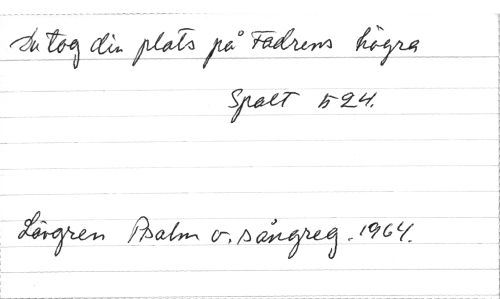 Du tog din plats på Fadrens högra
Spalt 524.
Lövgren Psalm o. sångreg. 1964.